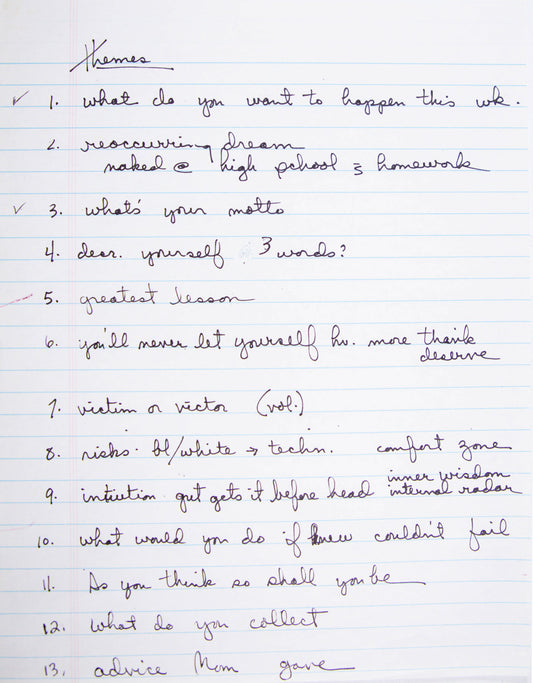 themes
✓ 1. what do you want to happen this wk.
2. reoccurring dream
naked @ high school s̄ homework
✓ 3. what's your motto
4. descr. yourself 3 words?
5. greatest lesson
6. you'll never let yourself hv. more thank
deserve
7. victim or victor (vol.)
8. risks. bl/white → techn. comfort zone
inner wisdom
9. intuition gut gets it before head internal radar
10. what would you do if knew couldn't fail
11. As you think so shall you be
12. what do you collect
13. advice Mom gave